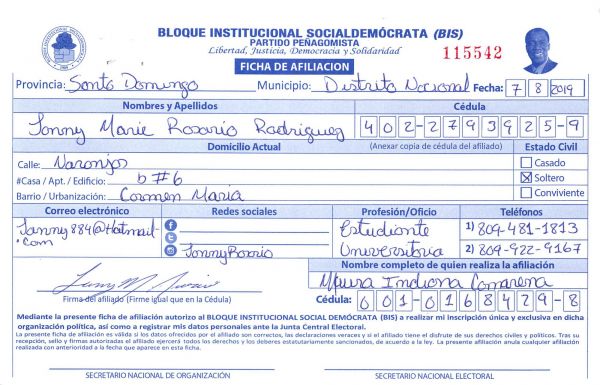 BLOQUE INSTITUCIONAL SOCIALDEMÓCRATA (BIS)
PARTIDO PEÑAGOMISTA
Libertad, Justicia, Democracia y Solidaridad
115542
FICHA DE AFILIACION
Provincia: Santo Domingo Municipio: Distrito Nacional Fecha: 7 8 2019
Nombres y Apellidos Cédula
Tanny Marie Rosario Rodriguez 402-2793925-9
Domicilio Actual (Anexar copia de cédula del afiliado) Estado Civil
Calle: Naranjos Casado
#Casa / Apt. / Edificio: b#6 Soltero
Barrio / Urbanización: Carmen Maria Conviviente
Correo electrónico Redes sociales Profesión/Oficio Teléfonos
Tanny884@Hotmail- Estudiante 1) 809-481-1813
.com TannyRosario Universitaria 2) 809-922-9167
Nombre completo de quien realiza la afiliación
Maura Indiana Camarena
Firma del afiliado (Firme igual que en la Cédula) Cédula: 001-0168429-8
Mediante la presente ficha de afiliación autorizo al BLOQUE INSTITUCIONAL SOCIAL DEMÓCRATA (BIS) a realizar mi inscripción única y exclusiva en dicha
organización política, así como a registrar mis datos personales ante la Junta Central Electoral.
La presente ficha de afiliación es válida si los datos ofrecidos por el afiliado son correctos, las declaraciones veraces y si el afiliado tiene el disfrute de sus derechos civiles y políticos. Tras su
recepción, sello y firmas autorizadas el afiliado ejercerá todos los derechos y los deberes estatutariamente sancionados, de acuerdo a la ley. La presente afiliación anula cualquier afiliación
realizada con anterioridad a la fecha que aparece en esta ficha.
SECRETARIO NACIONAL DE ORGANIZACIÓN SECRETARIO NACIONAL ELECTORAL